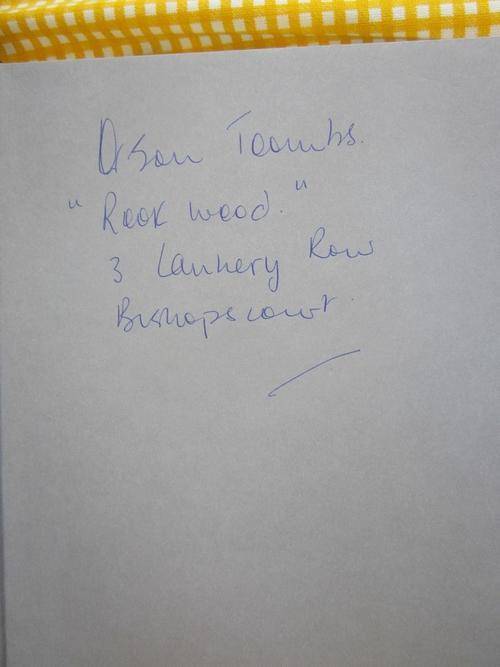 Orson Toombs.
"Rook wood."
3 Lannery Row
Bishopscourt.